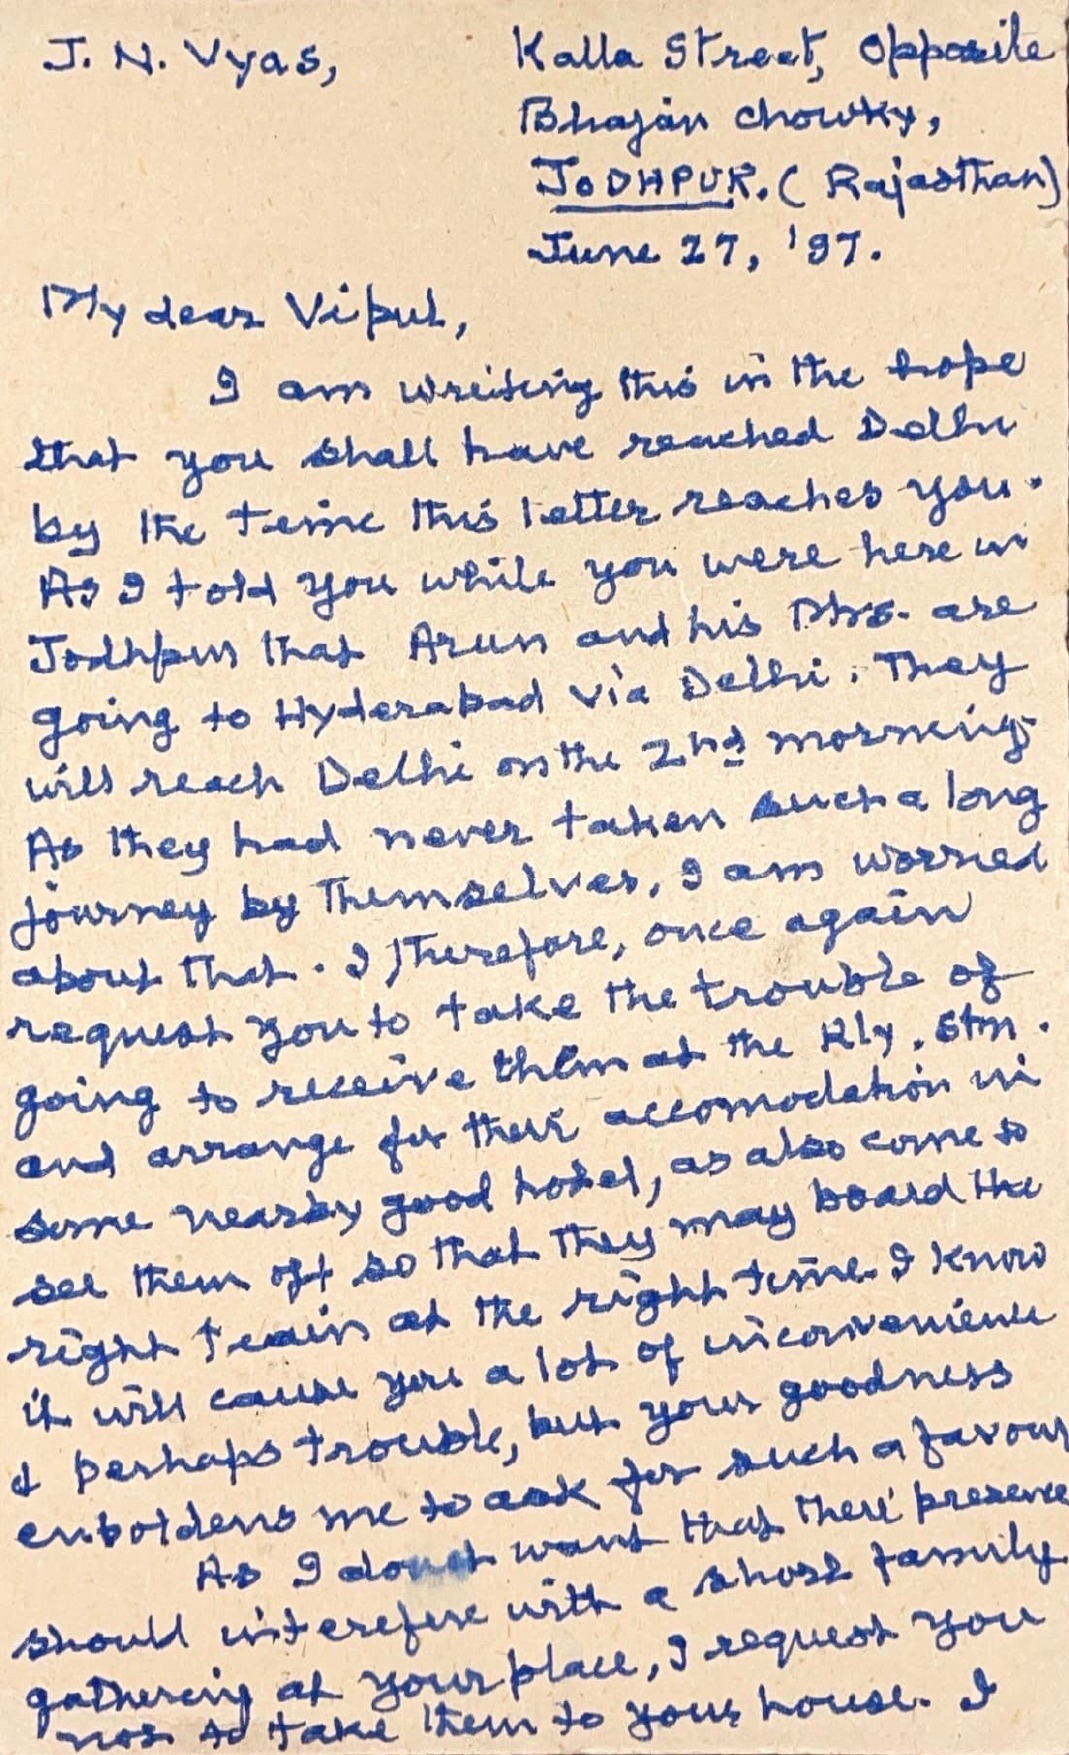 J. N. Vyas,
Kalla Street, Opposite
Bhajan Chowky,
JODHPUR. (Rajasthan)
June 27, '97.
My dear Vipul,
I am writing this in the hope
that you shall have reached Delhi
by the time this letter reaches you.
As I told you while you were here in
Jodhpur that Arun and his Mrs. are
going to Hyderabad via Delhi. They
will reach Delhi on the 2nd morning.
As they had never taken such a long
journey by themselves, I am worried
about that. I, therefore, once again
request you to take the trouble of
going to receive them at the Rly. Stn.
and arrange for their accomodation in
some nearby good hotel, as also come to
see them off so that they may board the
right train at the right time. I know
it will cause you a lot of inconvenience
& perhaps trouble, but your goodness
enboldens me to ask for such a favour
As I do not want that their presence
should interefere with a short family
gathering at your place, I request you
not to take them to your house. I